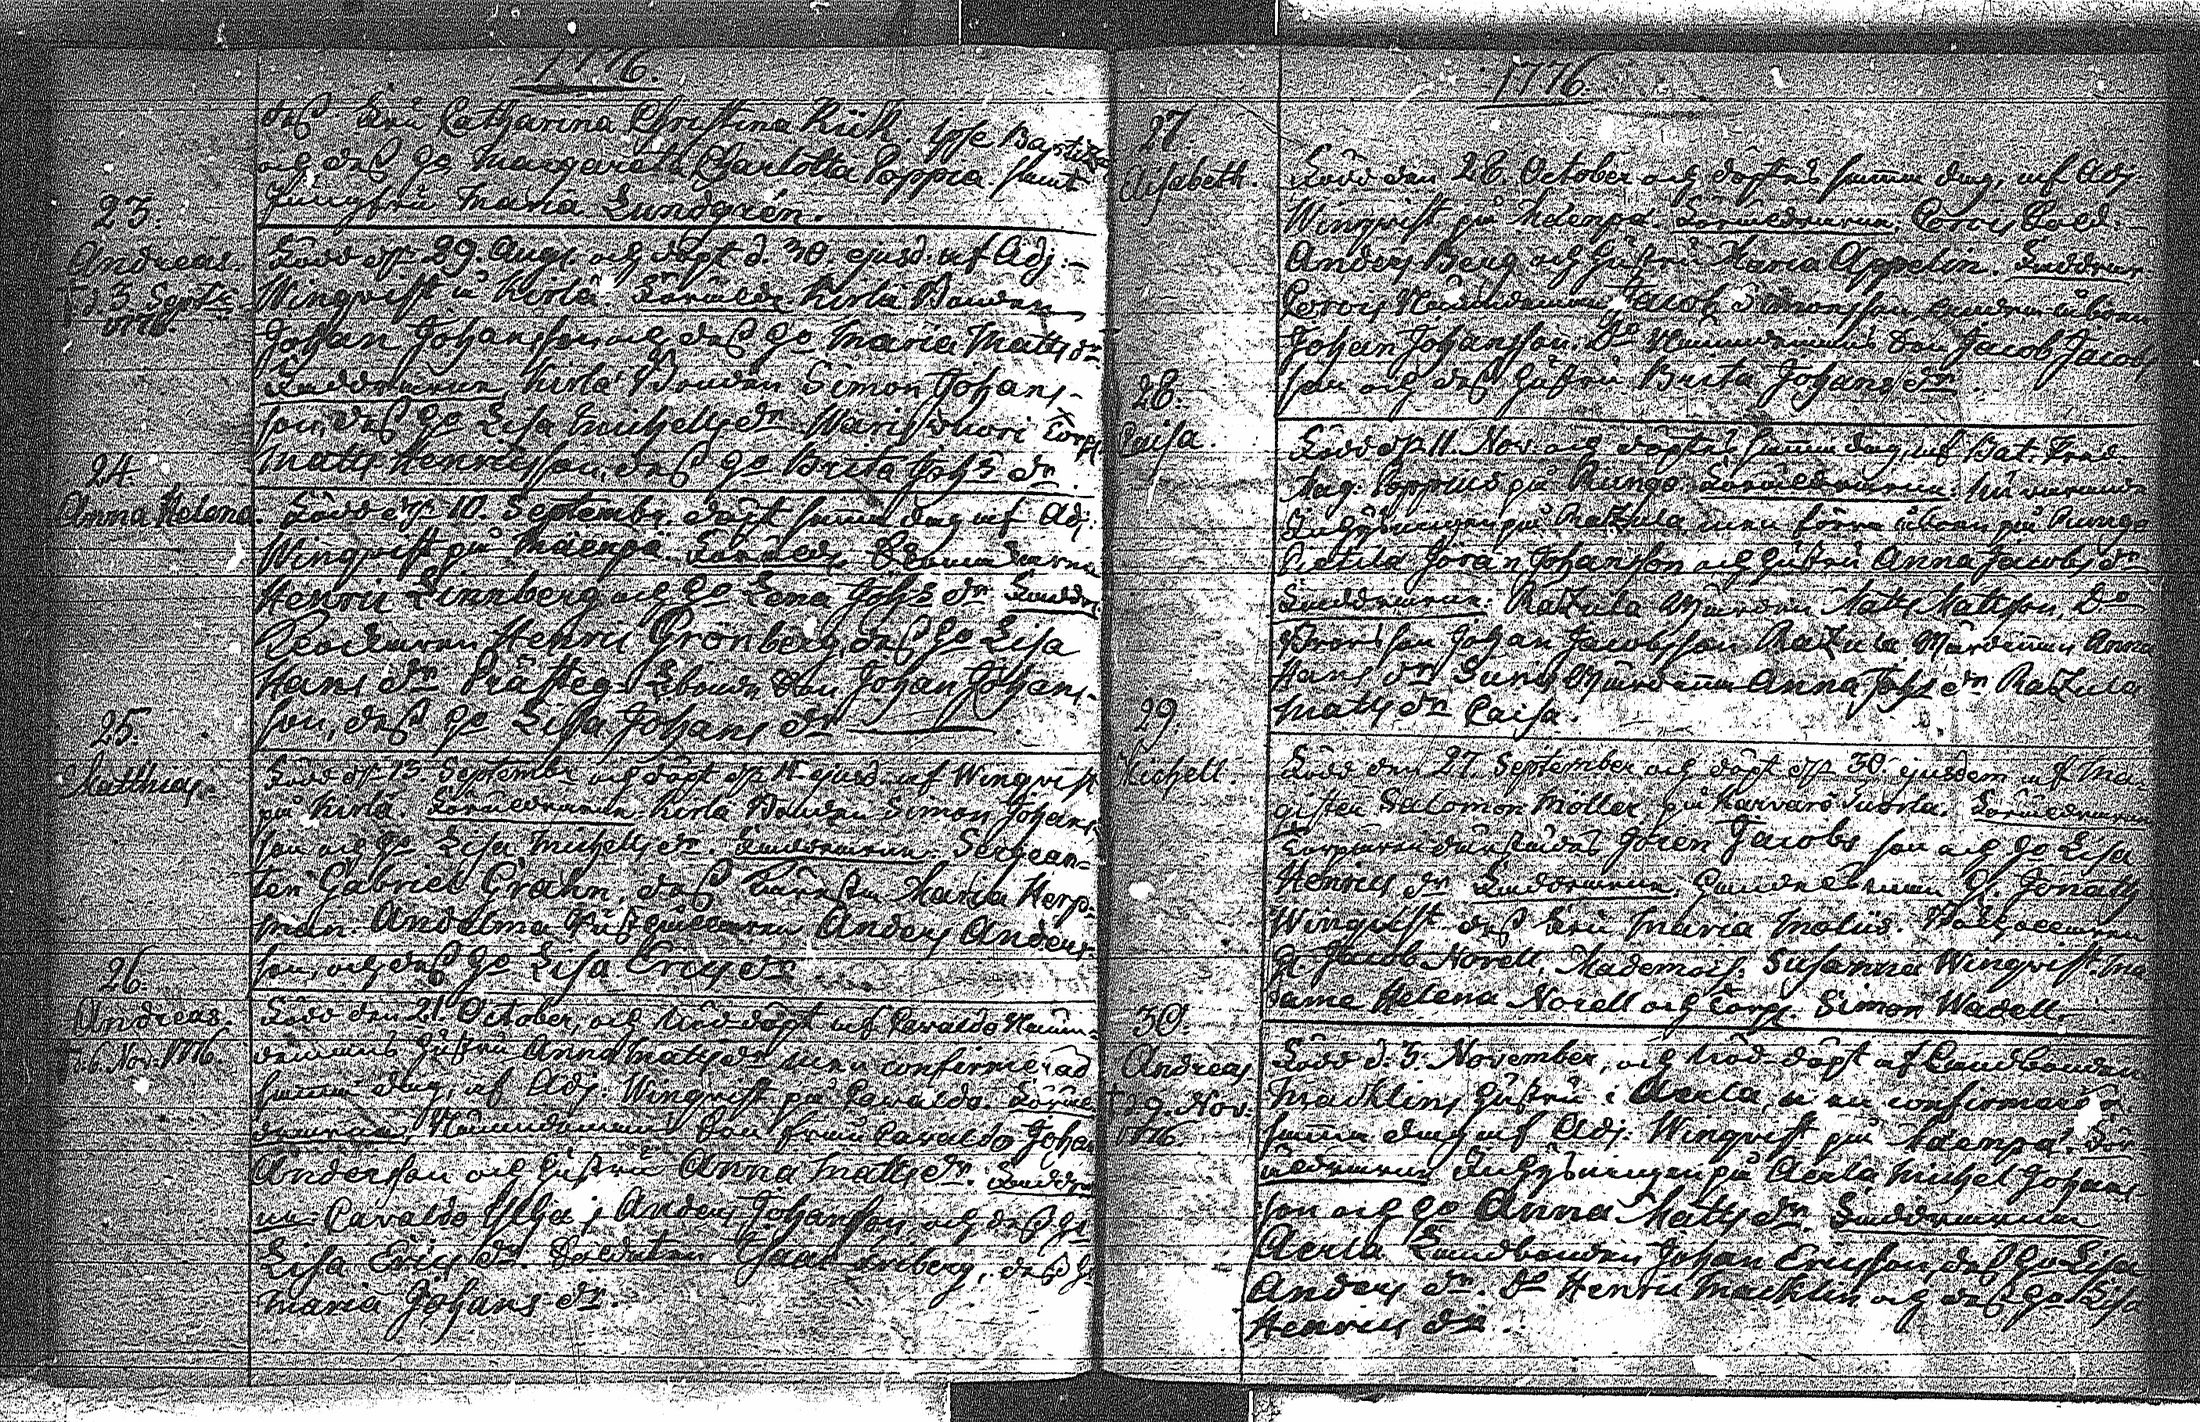 1776.
des fru Catharina Christina Kiik
och des ho Margareta Charlotta Poppia. samt
Jungfru Maria Lundgrén.
23.
Andreas.
† d. 3 Sept:
1776.
Född d. 29. Aug. och döpt d. 30. ejusd. af Adj.
Wingqvist å Kirla. Föräldr. Kirla Bonden
Johan Johansson och des ho Maria Matts dr
Faddrarna Kirla Bonden Simon Johans-
son, des ho Lisa Michells dr. Torp.
Matts Henricsson, des ho Brita Joh:s dr.
24.
Anna Helena.
Född d. 10. Septembr. döpt samma dag af Adj.
Wingqvist på Mäenpä. Föräldr.
Henric Linnberg och ho Lena Joh:s dr Faddr.
Henric Grönberg, des ho Lisa
Hans dr Prästeg. Johan Johans-
son, des ho Lisa Johans dr
25.
Matthias.
Född d. 13. Septembr och döpt d. 14 ejusd. af Wingqvist
på Kirla. Föräldrarna Kirla Bonden Simon Johans
son och ho Lisa Michells dr. Faddrarna. Sergean-
ten Gabriel Grahn, des Maria Herp-
man. Anders Anders-
son, och des ho Lisa Erics dr
26.
Andreas.
† d. 6. Nov. 1776.
Född den 21. October, och Nöd-döpt af Cavaldo Nämn-
demans hustru Anna Matts dr men confirmerad
samma dag, af Adj. Wingqvist på Cavaldo. Föräl-
drarna, Nämndemans Son från Cavaldo Johan
Andersson och hustru Anna Matts dr. Faddra
Cavaldo Anders Johansson och des ho
Lisa Erics dr. Soldaten des ho
Maria Johans dr.
1776.
27
Elisabeth.
Född den 28. October och döptes samma dag, af Adj.
Wingqvist på Mäenpä. Föräldrarna, Sold.
Anders Berg och hustru Maria Appelin. Faddrar.
Nämndeman Jacob Simonsson
Johan Johansson. Do Nämndemans Son Jacob Jacobs
son och des hustru Brita Johans dr.
28.
Caisa.
Född d. 11. Nov. och döptes samma dag, af Bat. Pred.
Mag. Poppius på Rungo Föräldrarna.
Inhysningen på Ratzula men förra åboen på Rungo
Jöran Johansson och hustru Anna Jacobs dr
Faddrarna. Ratzula Matts Mattsson, Do
Brorsson Johan Jacobsson Ratzula Värdinnan Anna
Hans dr Värdinna Anna Joh:s dr Ratzula
Matts dr Caisa.
29.
Michell
Född den 27. September och döpt d. 30. ejusdem af Ma-
gister Salomon Möller på. Föräldrarna
Jören Jacobs son och ho Lisa
Henrics dr Faddrarna. H. Jonath
Wingqvist des fru Maria Molius.
H. Jacob Norell, Mademois. Susanna Wingqvist. Ma
dame Helena Norell och Corp. Simon Wadell.
30.
Andreas
† 29. Nov.
1776
Född d. 5. November, och Nöd-döpt af Landbonden
Macklins hustru i Aerla, men confirmerad
samma dag af Adj. Wingqvist på Mäenpä. För
äldrarna Inhysningen på Aerla Michel Johans
son och ho Anna Matts dr. Faddrarna
Aerla Landbonden Johan Ericsson, des ho Lisa
Anders dr. Do Henric Macklin och des ho Lisa
Henrics dr.